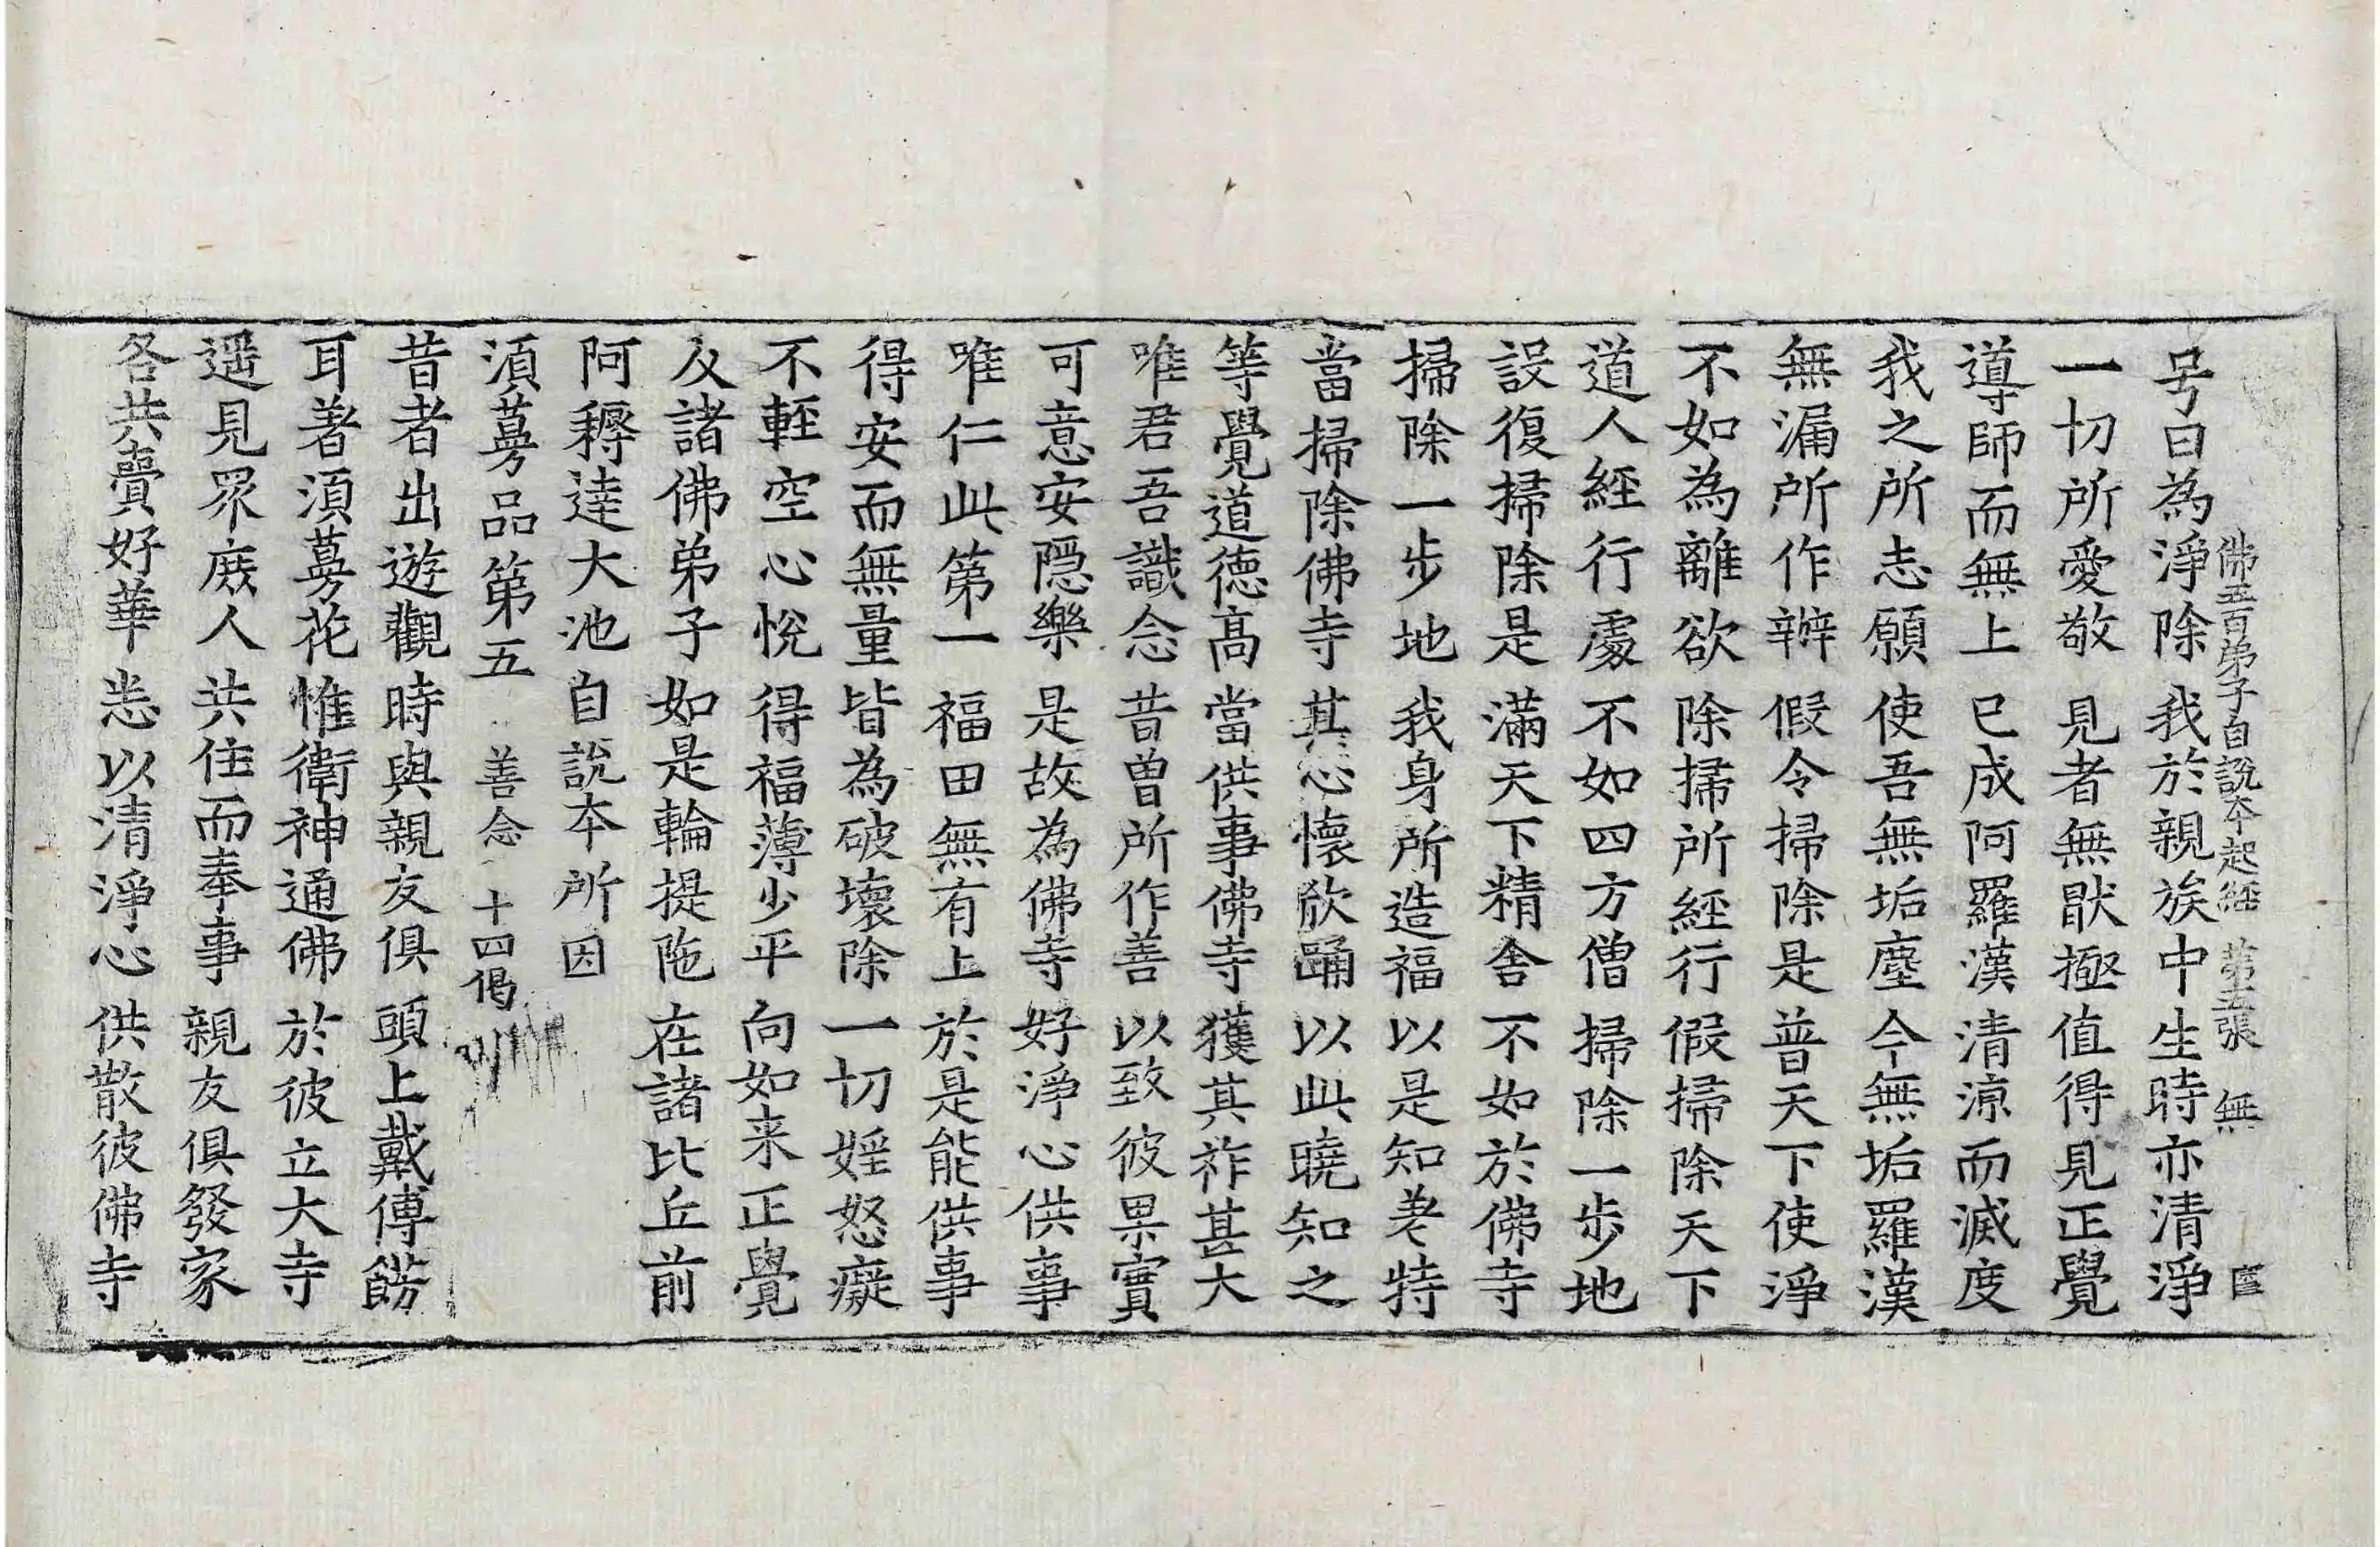 佛五百弟子自說本起經 第五張 無
号曰為淨除 我於親族中 生時亦清淨
一切所愛敬 見者無猒極 值得見正覺
導師而無上 已成阿羅漢 清涼而滅度
我之所志願 使吾無垢塵 今無垢羅漢
無漏所作辦 假令掃除是 普天下使淨
不如為離欲 除掃所經行 假掃除天下
道人經行處 不如四方僧 掃除一步地
設復掃除是 滿天下精舍 不如於佛寺
掃除一步地 我身所造福 以是知差特
當掃除佛寺 其心懷欣踊 以此曉知之
等覺道德高 當供事佛寺 獲其祚甚大
唯君吾識念 昔曾所作善 以致彼果實
可意安隱樂 是故為佛寺 好淨心供事
唯仁此第一 福田無有上 於是能供事
得安而無量 皆為破壞除 一切婬怒癡
不輕空心悅 得福薄少平 向如来正覺
及諸佛弟子 如是輪提陁 在諸比丘前
阿耨達大池 自說本所因
須蔓品第五 善念 十四偈
昔者出遊觀 時與親友俱 頭上戴傅餝
耳著須蔓花 惟衛神通佛 於彼立大寺
遥見眾庻人 共住而奉事 親友俱發家
各共賣好華 恙以清淨心 供散彼佛寺